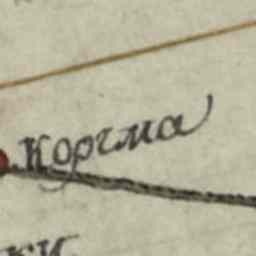 Корчма
ки